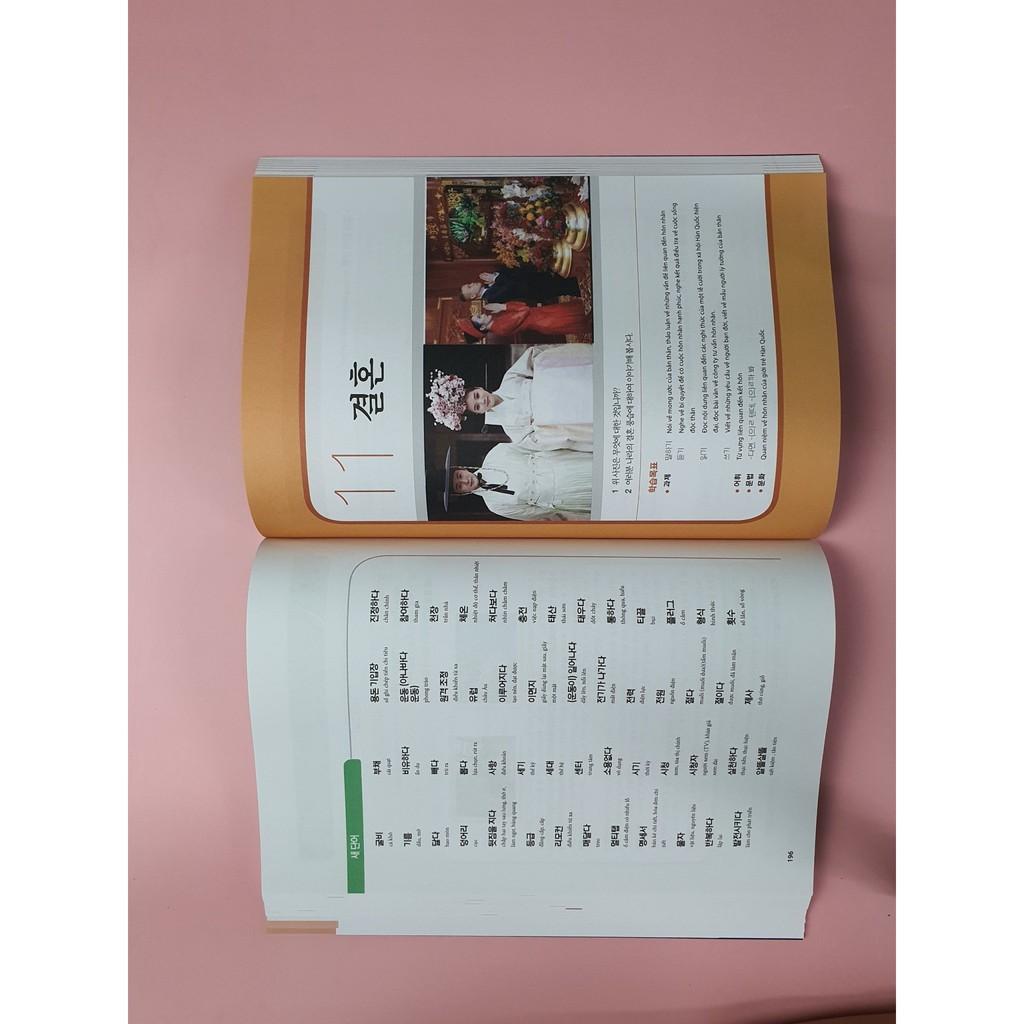 새 단어
굴비
cá khô
기름
dầu, mỡ
닮다
ham muốn
덩어리
cục
뒷짐을 지다
chắp hai tay sau lưng, thờ ơ,
làm ngơ, bàng quang
등급
đẳng cấp, cấp
리모컨
điều khiển từ xa
매달다
treo
멀티탭
ổ cắm điện có nhiều lỗ
명세서
bản kê chi tiết, hóa đơn chi
tiết
물자
vật liệu, nguyên liệu
반복하다
lặp lại
발전시키다
làm cho phát triển
부채
cái quạt
비유하다
ẩn dụ
빼다
trừ ra
뽑다
lựa chọn, rút ra
사항
điều khoản
세기
thế kỷ
세대
thế hệ
센터
trung tâm
소용없다
vô dụng
시기
thời kỳ
시청
xem, tòa thị chính
시청자
người xem (TV), khán giả
xem đài
실천하다
thực tiễn, thực hiện
알뜰살뜰
tiết kiệm, tằn tiện
용돈 기입장
sổ ghi chép tiền chi tiêu
운동 (아나바다
운동)
phong trào
원격 조정
điều khiển từ xa
유럽
châu Âu
이루어지다
tạo nên, đạt được
이면지
giấy dùng lại mặt sau, giấy
một mặt
(운동이) 일어나다
dấy lên, nổi lên
전기가 나가다
mất điện
전력
điện lực
전원
nguồn điện
절다
muối (muối dưa)/(tẩm muối)
절이다
được muối, đã làm mặn
제사
thờ cúng, giỗ
진정하다
chân chính
참여하다
tham gia
천장
trần nhà
체온
nhiệt độ cơ thể, thân nhiệt
쳐다보다
nhìn chằm chằm
충전
việc nạp điện
태산
thái sơn
태우다
đốt cháy
통하다
thông qua, hiểu
티끌
bụi
플러그
ổ cắm
형식
hình thức
횟수
số lần, số vòng
196
11 결혼
1 위 사진은 무엇에 대한 것입니까?
2 여러분 나라의 결혼 풍습에 대하여 이야기해 봅시다.
학습 목표
• 과제 말하기 Nói về mong ước của bản thân, thảo luận về những vấn đề liên quan đến hôn nhân
듣기 Nghe về bí quyết để có cuộc hôn nhân hạnh phúc, nghe kết quả điều tra về cuộc sống
độc thân
읽기 Đọc nội dung liên quan đến các nghi thức của một lễ cưới trong xã hội Hàn Quốc hiện
đại, đọc bài văn về công ty tư vấn hôn nhân.
쓰기 Viết về những yêu cầu về người bạn đời, viết về mẫu người lý tưởng của bản thân
• 어휘 Từ vựng liên quan đến kết hôn
• 문법 -다면 -(으)ㄹ 텐데, -(으)ㄹ까 봐
• 문화 Quan niệm về hôn nhân của giới trẻ Hàn Quốc